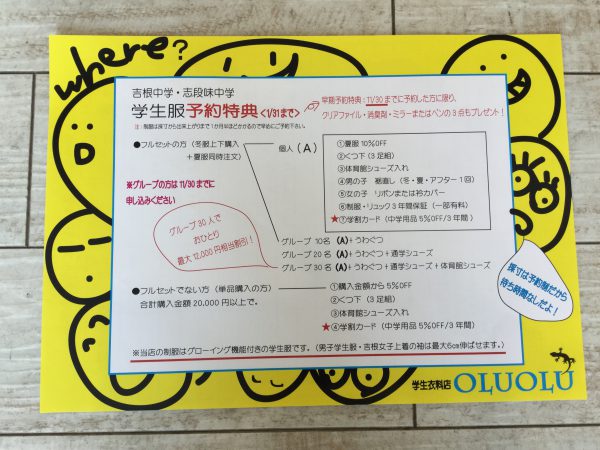 where?
吉根中学・志段味中学
学生服予約特典<1/31まで>
注：制服は採寸から出来上がりまで1か月半ほどかかるので早めにご予約下さい。
早期予約特典：11/30までに予約した方に限り、
クリアファイル・消臭剤・ミラーまたはペンの3点もプレゼント！
●フルセットの方（冬服上下購入
＋夏服同時注文）
個人（A）
①夏服10%OFF
②くつ下（3足組）
③体育館シューズ入れ
④男の子　裾直し（冬・夏・アフター1回）
⑤女の子　リボンまたは衿カバー
⑥制服・リュック3年間保証（一部有料）
★⑦学割カード（中学用品5%OFF/3年間）
※グループの方は11/30までに
申し込みください
グループ30人で
おひとり
最大12,000円相当割引！
グループ10名（A）＋うわぐつ
グループ20名（A）＋うわぐつ＋通学シューズ
グループ30名（A）＋うわぐつ＋通学シューズ＋体育館シューズ
●フルセットでない方（単品購入の方）
合計購入金額20,000円以上で。
①購入金額から5%OFF
②くつ下（3足組）
③体育館シューズ入れ
★④学割カード（中学用品5%OFF/3年間）
採寸は予約制だから
待ち時間なしだよ！
※当店の制服はグローイング機能付きの学生服です。（男子学生服・吉根女子上着の袖は最大6cm伸ばせます。）
学生衣料店 OLUOLU